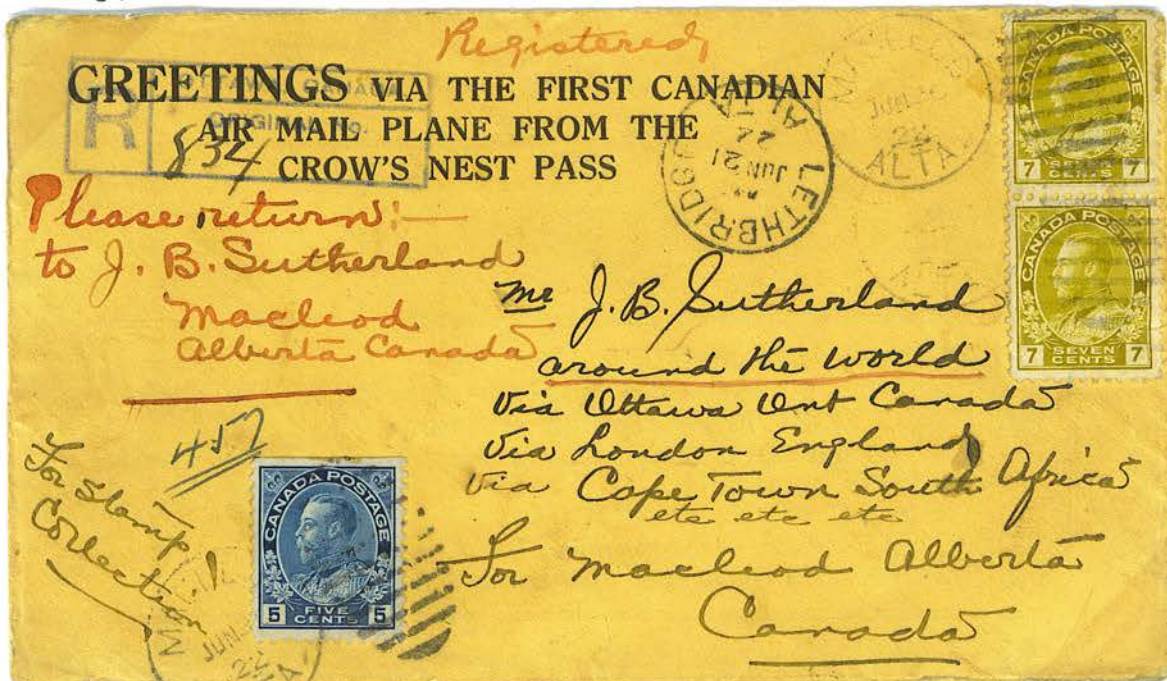 Registered
GREETINGS VIA THE FIRST CANADIAN
AIR MAIL PLANE FROM THE
CROW'S NEST PASS
R
ORIGINAL No.
834
LETHBRIDGE
JUN 21
22
ALTA
ALTA.
22
CANADA POSTAGE
7 SEVEN CENTS 7
CANADA POSTAGE
7 SEVEN CENTS 7
Please return:—
to J. B. Sutherland
Macleod
Alberta Canada
Mr J. B. Sutherland
around the world
Via Ottawa Ont Canada
Via London England
Via Cape Town South Africa
etc etc etc
For Macleod Alberta
Canada
457
For Stamp
Collection
CANADA POSTAGE
5 FIVE CENTS 5
JUN
22